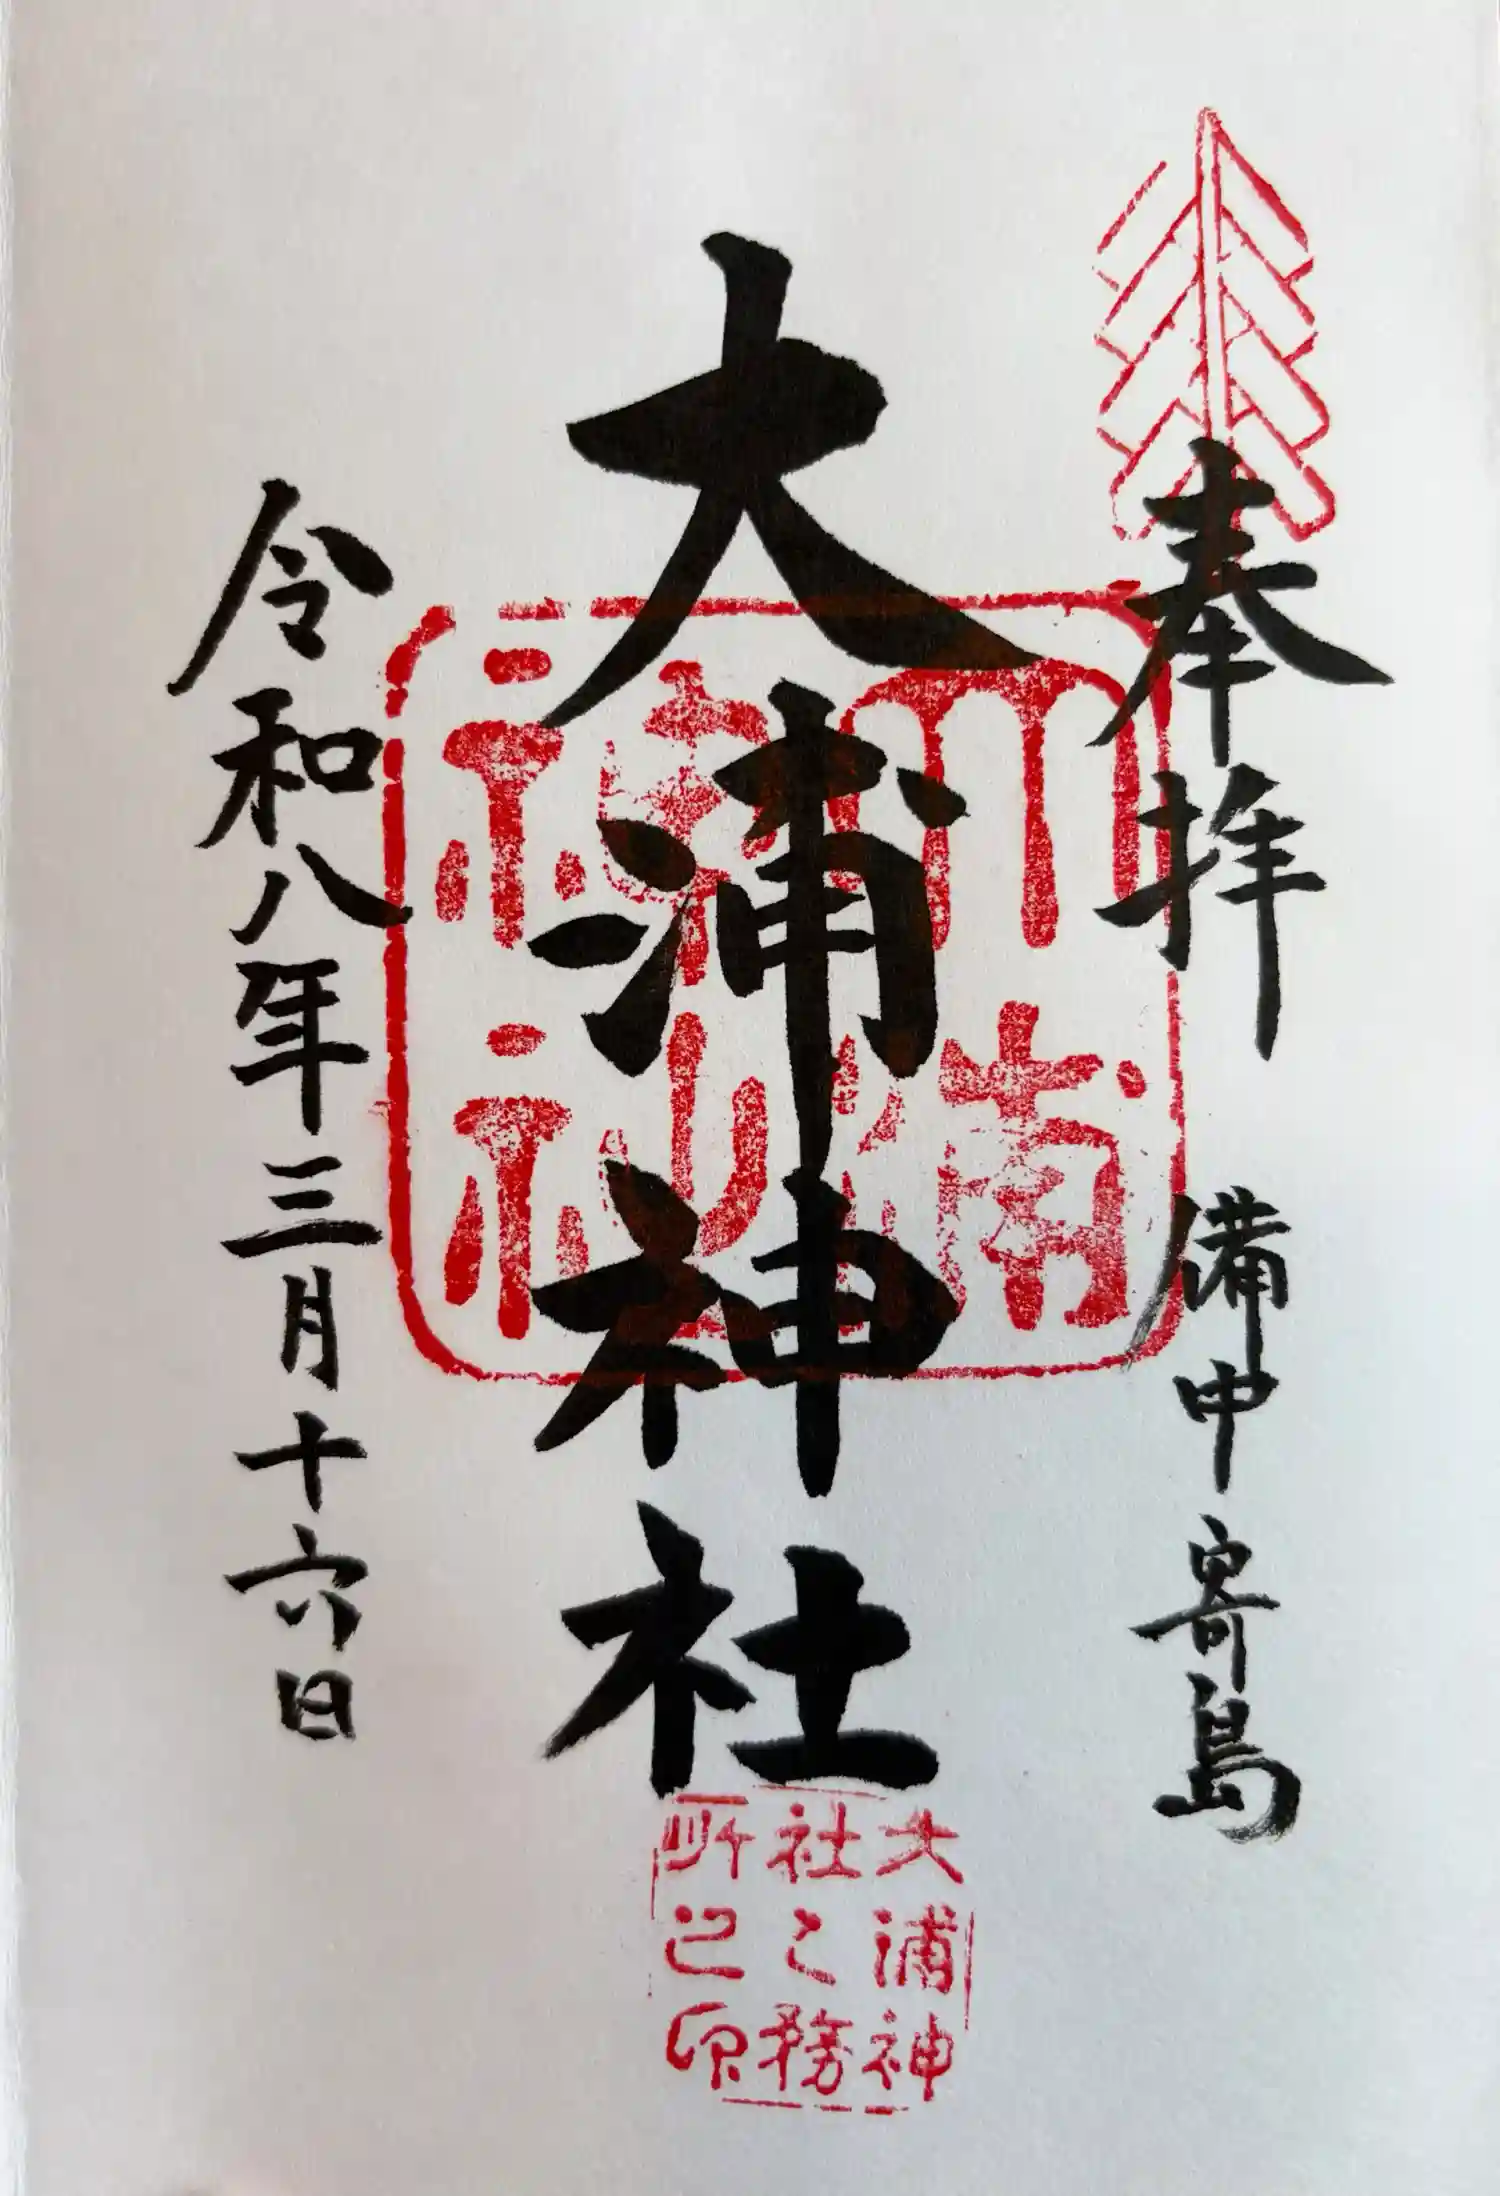 奉拝
備中寄島
大浦神社
大浦神社
大浦神
社之務
所之印
令和八年三月十六日